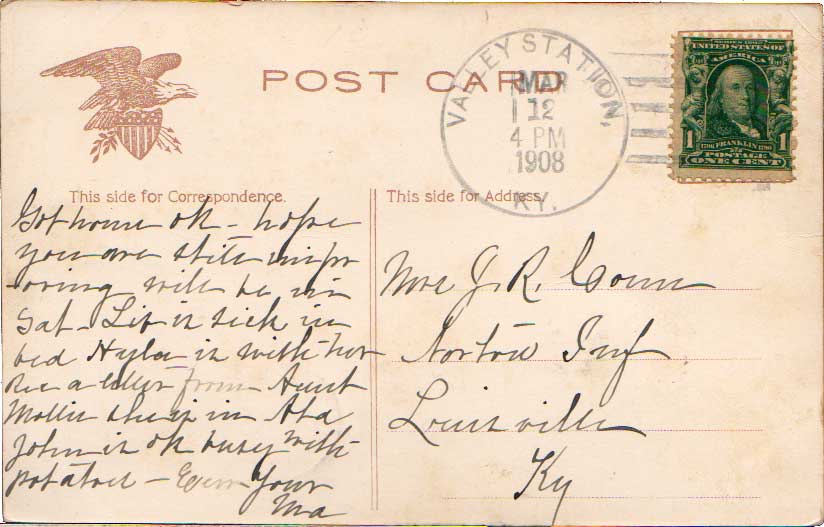 POST CARD
VALLEY STATION,
MAR
12
4 PM
1908
KY.
SERIES 1902
UNITED STATES OF
AMERICA
1 1706 FRANKLIN 1790 1
POSTAGE
ONE CENT
This side for Correspondence.
Got home ok - hope
you are still impr
oving will be in
Sat - Lib is sick in
bed Hyla is with her
Rec a letter from Aunt
Mollie she is in Ala
John is ok busy with
potatoes - Ever Your
Ma
This side for Address.
Mrs J. R. Conn
Norton Inf
Louisville
Ky